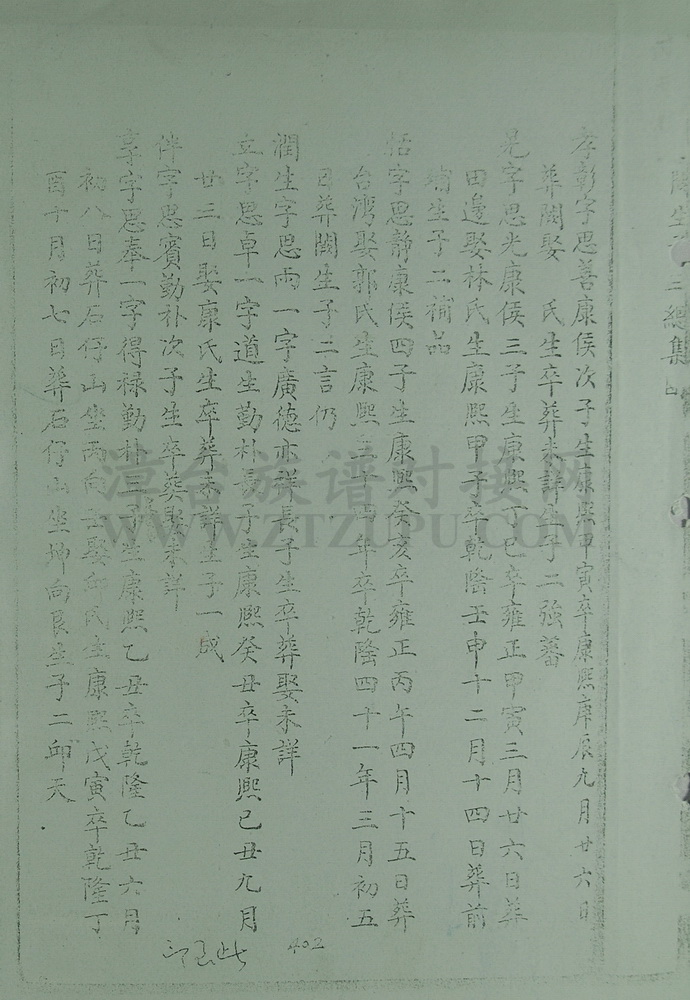 孝彰字思善康侯次子生康熙甲寅卒康熙庚辰九月廿六日
葬闕娶 氏生卒葬未詳生子二強蕃
字思光康侯三子生康熙丁巳卒雍正甲寅三月廿六日葬
田邊娶林氏生康熙甲子卒乾隆壬申十二月十四日葬前
生子二補品
恬字思靜康侯四子生康熙癸亥卒雍正丙午四月十五日葬
台湾娶郭氏生康熙三十 年卒乾隆四十一年三月初五
日葬闕生子二言仍
潤生字思雨一字廣德亦詳長子生卒葬娶未詳
立字思卓一字道生勤朴長子生康熙癸丑卒康熙己丑九月
廿三日娶康氏生卒葬未詳生子一成
伴字思賓勤朴次子生卒葬娶未詳
享字思奉一字得禄勤朴三子生康熙乙丑卒乾隆乙丑六月
初八日葬石仔山坐丙向 娶邱氏生康熙戊寅卒乾隆丁
酉十月初七日葬石仔山坐坤向艮生子二 天
402
漳台族谱对接网
WWW.ZTZUPU.COM